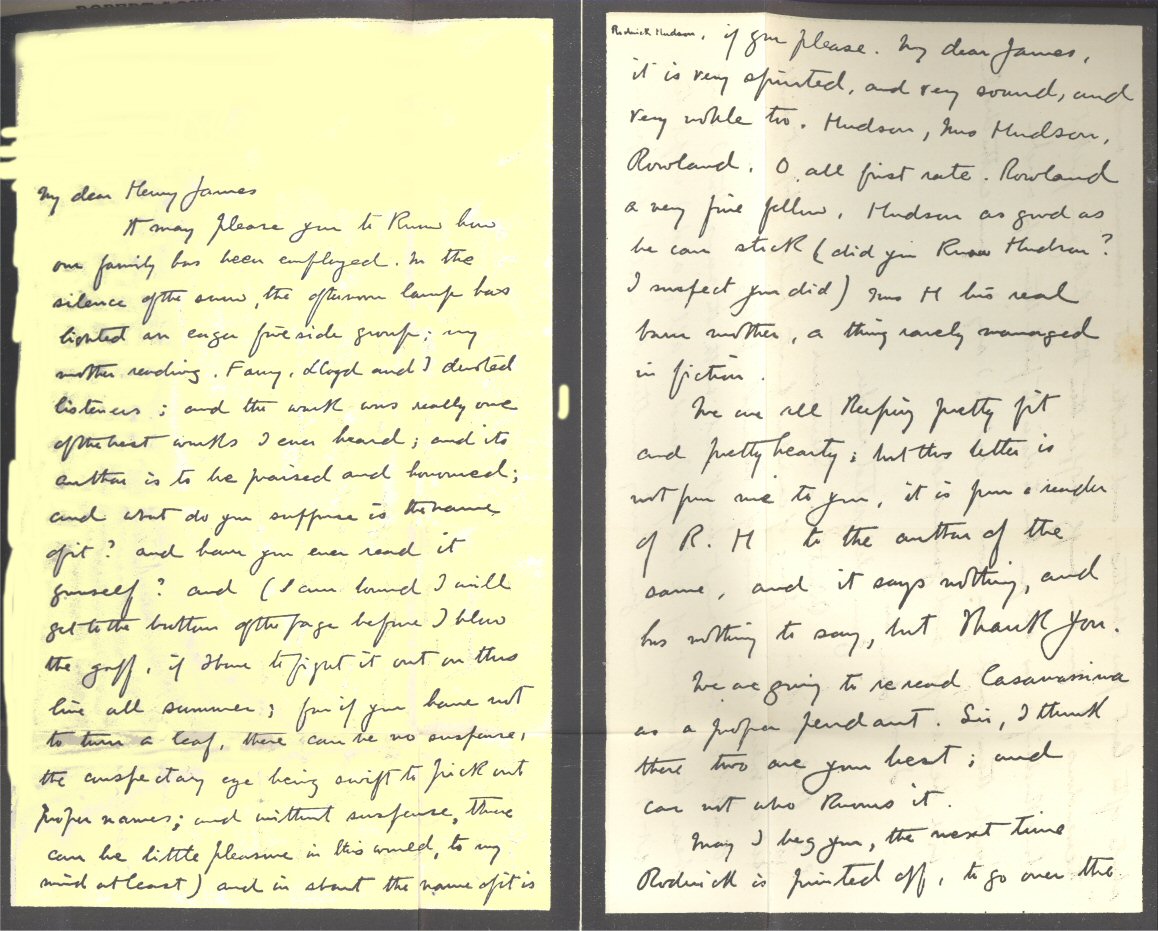 My dear Henry James
It may please you to know how
our family has been employed. In the
silence of the snow, the afternoon lamp has
lighted an eager fireside group; my
mother reading. Fanny, Lloyd and I devoted
listeners; and the work was really one
of the best works I ever heard; and its
author is to be praised and honoured;
and what do you suppose is the name
of it? and have you ever read it
yourself? and (I am bound I will
get to the bottom of the page before I blow
the gaff, if I have to fight it out on this
line all summer; for if you have not
to turn a leaf, there can be no suspense,
the conspectory eye being swift to pick out
proper names; and without suspense, there
can be little pleasure in this world, to my
mind at least) and in short the name of it is
Roderick Hudson, if you please. My dear James,
it is very spirited, and very sound, and
very noble too. Hudson, Mrs Hudson,
Rowland. O, all first rate. Rowland
a very fine fellow, Hudson as good as
he can stick (did you know Hudson?
I suspect you did) Mrs H his real
born mother, a thing rarely managed
in fiction.
We are all keeping pretty fit
and pretty hearty; but this letter is
not from me to you, it is from a reader
of R. H to the author of the
same, and it says nothing, and
has nothing to say, but Thank You.
We are going to reread Casamassima
as a proper pendant. Sir, I think
these two are your best; and
care not who knows it.
May I beg you, the next time
Roderick is printed off, to go over the